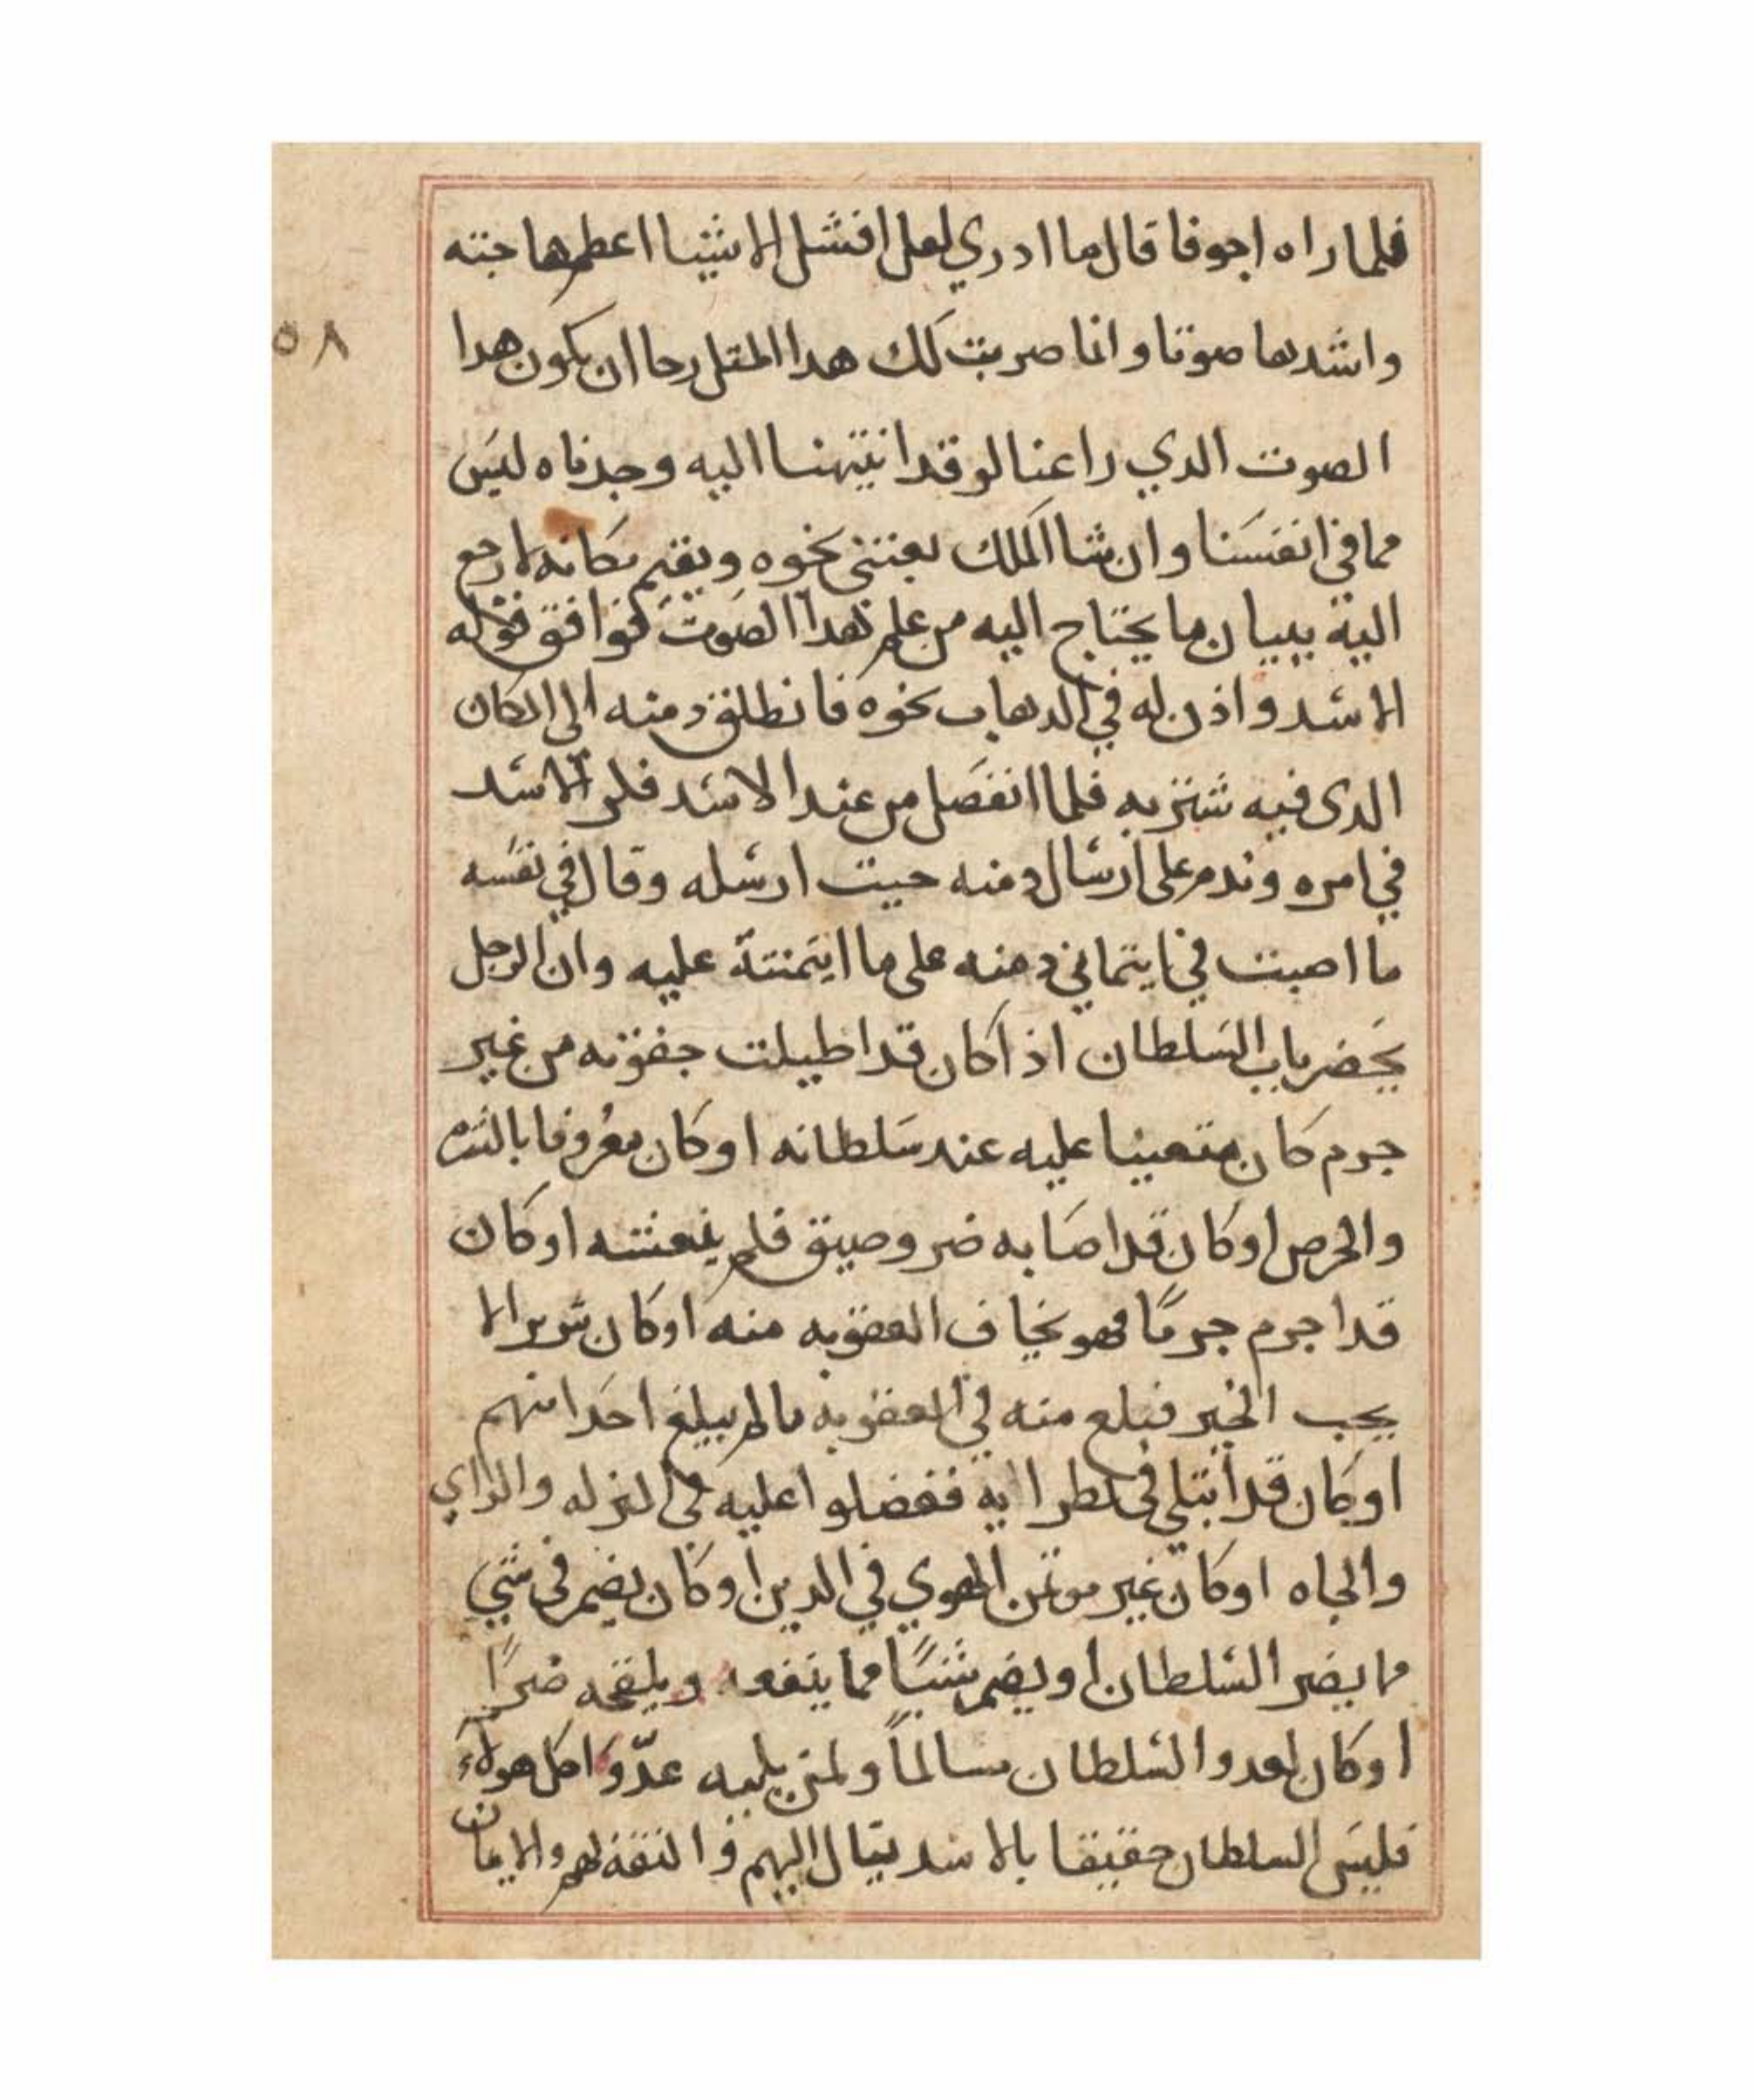 فلما راه اجوفا قال ما ادري لعل افشل الاشيا اعظمها جثته
واشدها صوتا وانما ضربت لك هدا المتل رجا ان يكون هدا
الصوت الدي راعنا لو قد انتهينا اليه وجدناه ليس
مما في انفسنا وان شا الملك بعتني نحوه ويقيم مكانه لارجع
الية ببيان ما يحتاج اليه من علم هدا الصوت فوافق قوله
الاسد واذن له في الدهاب نحوه فانطلق دمنه الى المكان
الدى فيه شنزبه فلما انفصل من عند الاسد فكر الاسد
في امره وندم على ارسال دمنه حيت ارسله وقال في نفسه
ما اصبت في ايتماني دمنه على ما ايتمنتة عليه وان الرجل
يحضر باب السلطان اذا كان قد اطيلت جفوته من غير
جرم كان متعيبا عليه عند سلطانه او كان معروفا بالشره
والحرص او كان قد اصابه ضر وضيق فلم ينعشه او كان
قد اجرم جرمًا فهو يخاف العقوبه منه او كان شرير الا
يحب الخير فبلغ منه في العقوبه ما لم يبلغ احدا منهم
او كان قد ابتلي في نظرايه ففضلوا عليه في المنزله والراي
والجاه او كان غير موتمن الهوي في الدين او كان يضمر في شي
ما يضر السلطان او يضمر شيئًا مما ينفعه ويلقحه ضرًا
او كان لعدو السلطان مسالماً ولمن يليه عدّوًا كل هولاء
فليس السلطان حقيقا بالاسد يتال اليهم والتقه لهم والايمان
٥٨